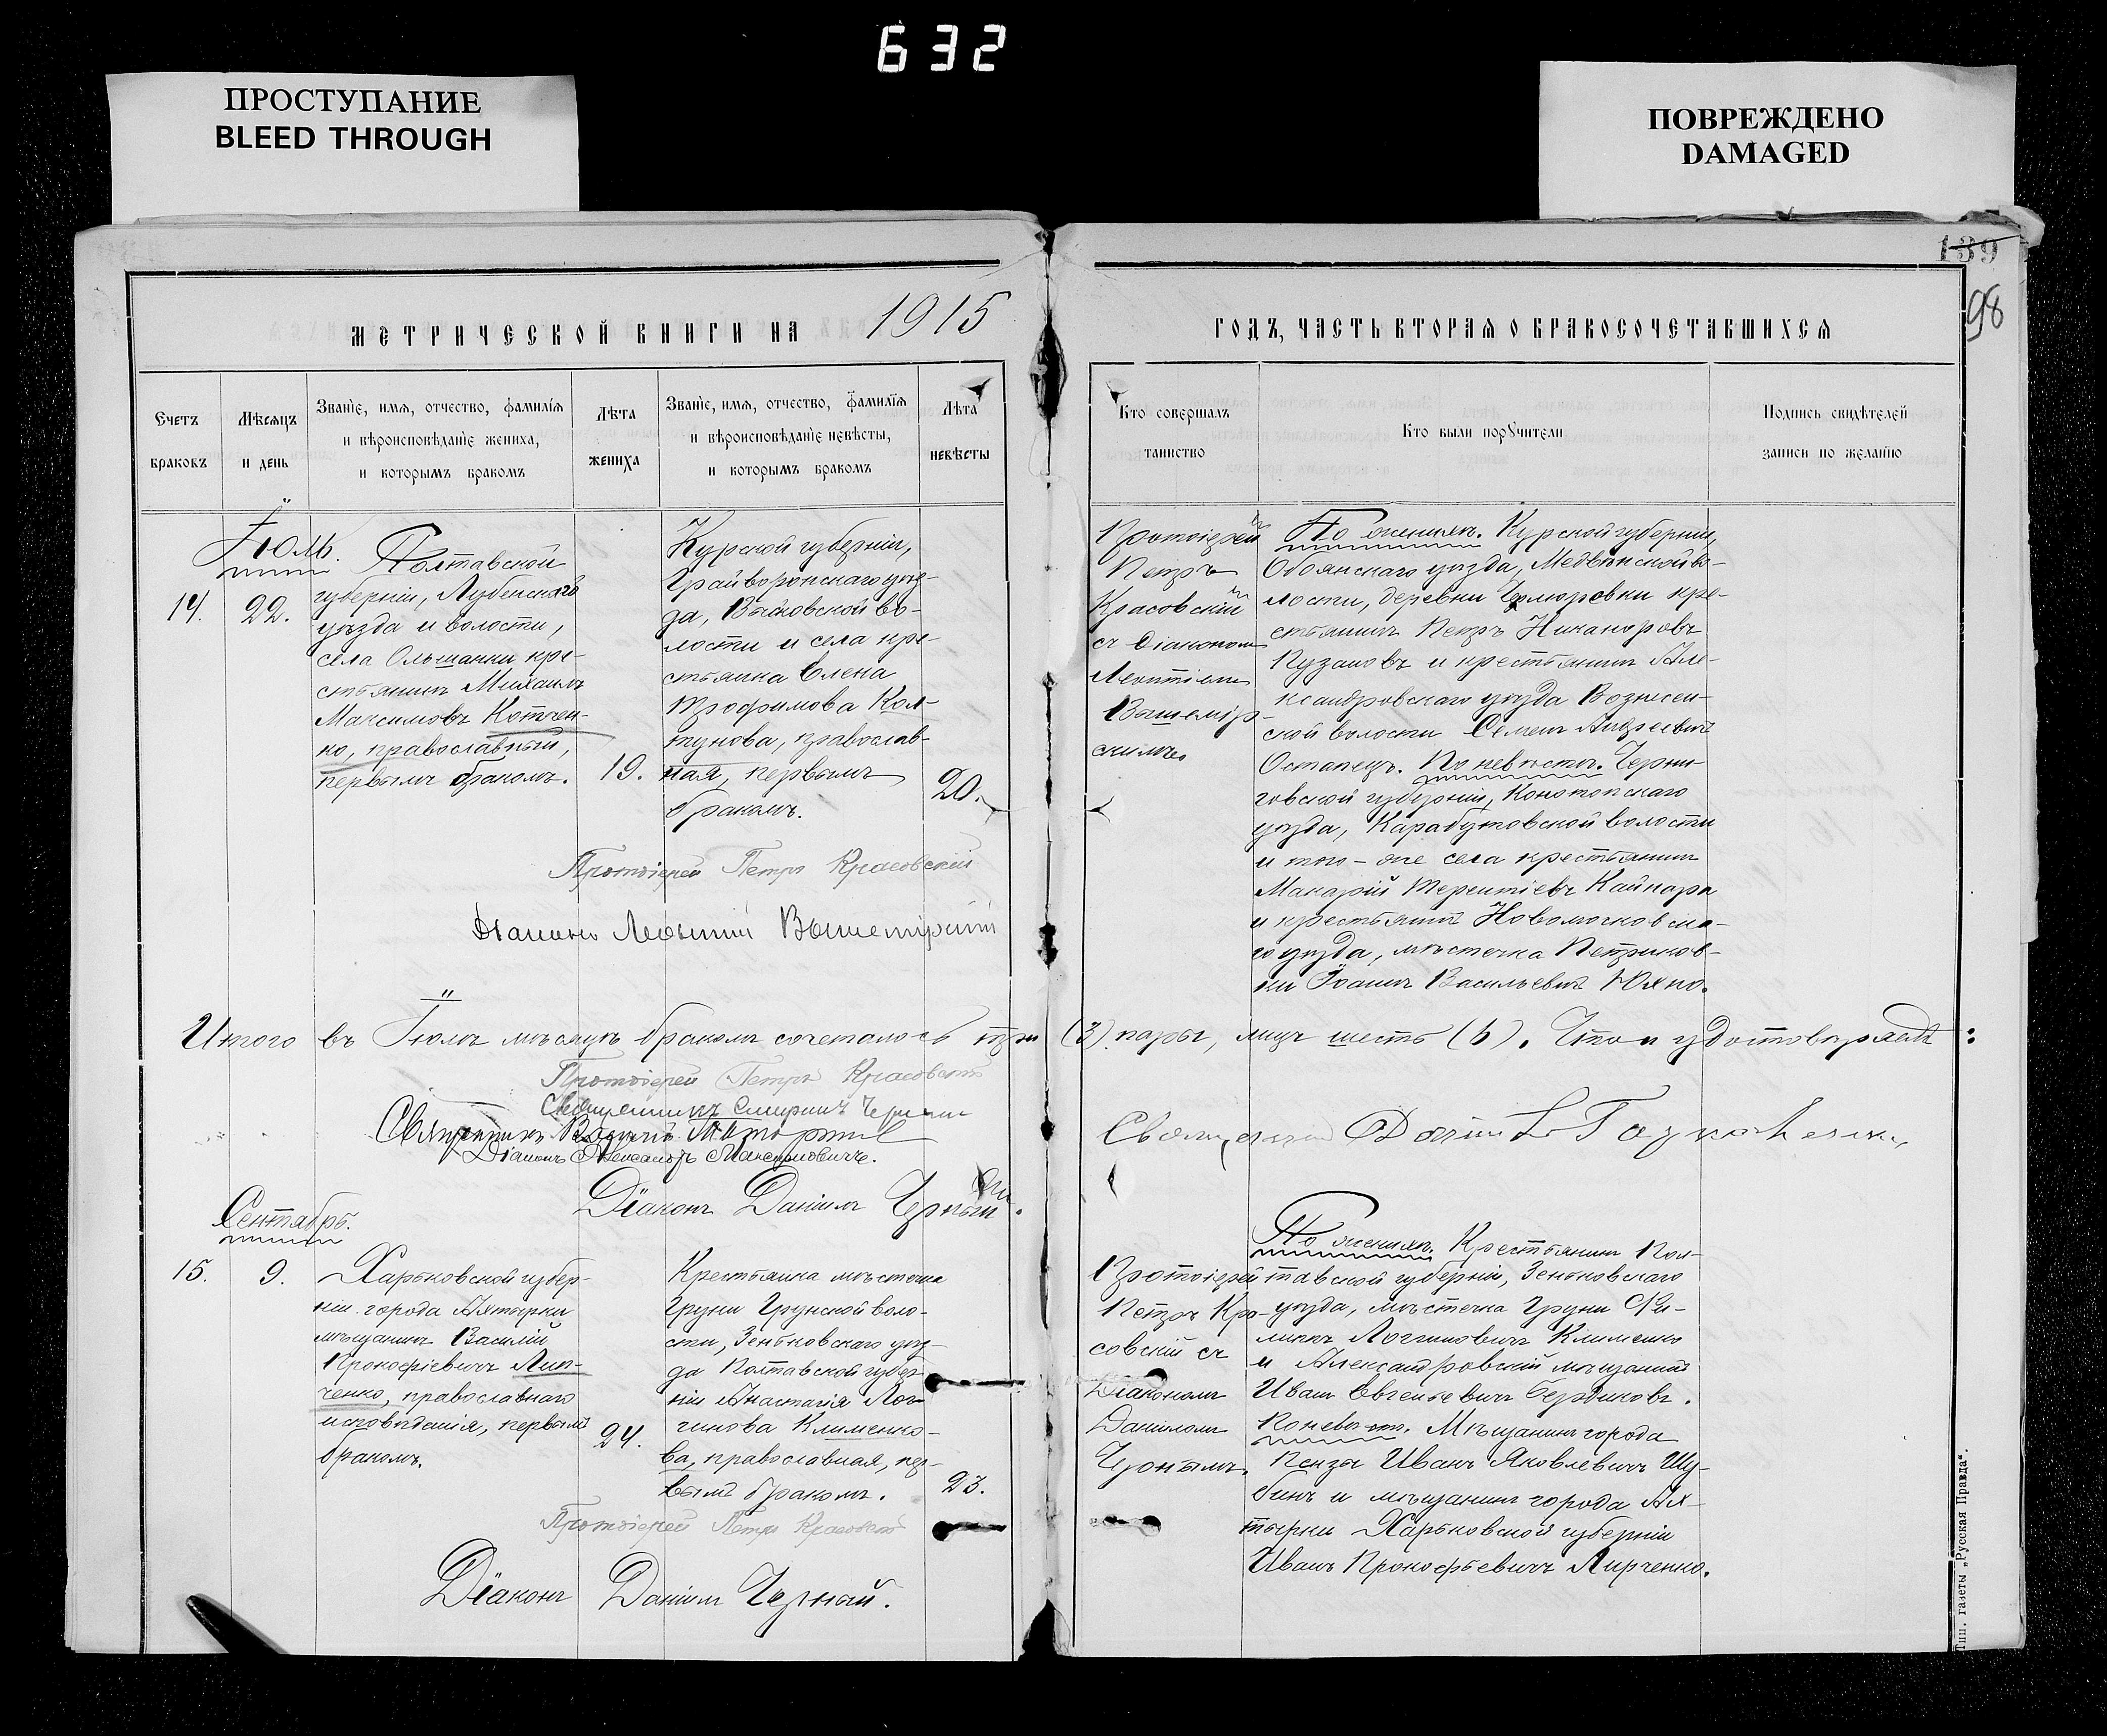 632
ПРОСТУПАНИЕ
BLEED THROUGH
ПОВРЕЖДЕНО
DAMAGED
139
98
МЕТРИЧЕСКОЙ КНИГИ НА 1915
ГОДЪ, ЧАСТЬ ВТОРАЯ О БРАКОСОЧЕТАВШИХСЯ
Счетъ
браковъ
Мѣсяцъ
и день
Званіе, имя, отчество, фамилія
и вѣроисповѣданіе жениха,
и которымъ бракомъ
Лѣта
жениха
Званіе, имя, отчество, фамилія
и вѣроисповѣданіе невѣсты,
и которымъ бракомъ
Лѣта
невѣсты
Кто совершалъ
таинство
Кто были поручители
Подпись свидѣтелей
записи по желанію
Іюль.
14.
22.
Полтавской
губерніи, Лубенскаго
уѣзда и волости,
села Ольшанки кре-
стьянинъ Михаилъ
Максимовъ Котчен-
ко, православный,
первымъ бракомъ.
19.
Курской губерніи,
Грайворонскаго уѣз-
да, волости и села кре-
стьянка Елена
Трофимова Кол-
тунова, православ-
ная, первымъ
бракомъ.
20.
Протоіерей
Петръ
Красовскій
съ діакономъ
Леонтіемъ
Вышемір-
скимъ
По женихѣ. Курской губерніи,
Обоянскаго уѣзда, Медвѣнской во-
лости, деревни кре-
стьянинъ Петръ Никаноровъ
Пузановъ и крестьянинъ Але-
ксандровскаго уѣзда Вознесен-
ской волости Семенъ Андреевичъ
Остапецъ. По невѣстѣ. Черни-
говской губерніи, Конотопскаго
уѣзда, Карабутовской волости
и того-же села крестьянинъ
Макарій Терентіевъ Кайпара
и крестьянинъ Новомосковска-
го уѣзда, мѣстечка Петриков-
ки Іоаннъ Васильевичъ Юхно.
Протоіерей Петръ Красовскій
Діаконъ Леонтій Вышемірскій
Итого въ Іюлѣ мѣсяцѣ бракомъ сочеталось три (3) пары, лицъ шесть (6). Что и удостовѣряемъ:
Протоіерей Петръ Красовскій
Священникъ
Священникъ
Діаконъ Александръ Максимовичъ.
Діаконъ Даніилъ Черный.
Священникъ
Сентябрь.
15.
9.
Харьковской губер-
ніи города Ахтырки
мѣщанинъ Василій
Прокофіевичъ Лип-
ченко, православнаго
исповѣданія, первымъ
бракомъ.
24.
Крестьянка мѣстечка
Груни Грунской воло-
сти, Зеньковскаго уѣз-
да Полтавской губер-
ніи Анастасія Лог-
гинова Клименко-
ва, православная, пер-
вымъ бракомъ.
23.
Протоіерей
Петръ Кра-
совскій съ
Діакономъ
Даніиломъ
Чернымъ.
По женихѣ. Крестьянинъ Пол-
тавской губерніи, Зеньковскаго
уѣзда, мѣстечка Груни Фи-
липпъ Логгиновичъ Клименко
и Александровскій мѣщанинъ
Иванъ Евгеньевичъ Бердиковъ.
По невѣстѣ. Мѣщанинъ города
Пензы Иванъ Яковлевичъ Шу-
бинъ и мѣщанинъ города Ах-
тырки Харьковской губерніи
Иванъ Прокофьевичъ Лирченко.
Протоіерей Петръ Красовскій
Діаконъ Даніилъ Черный.
Тип. газеты „Русская Правда“.